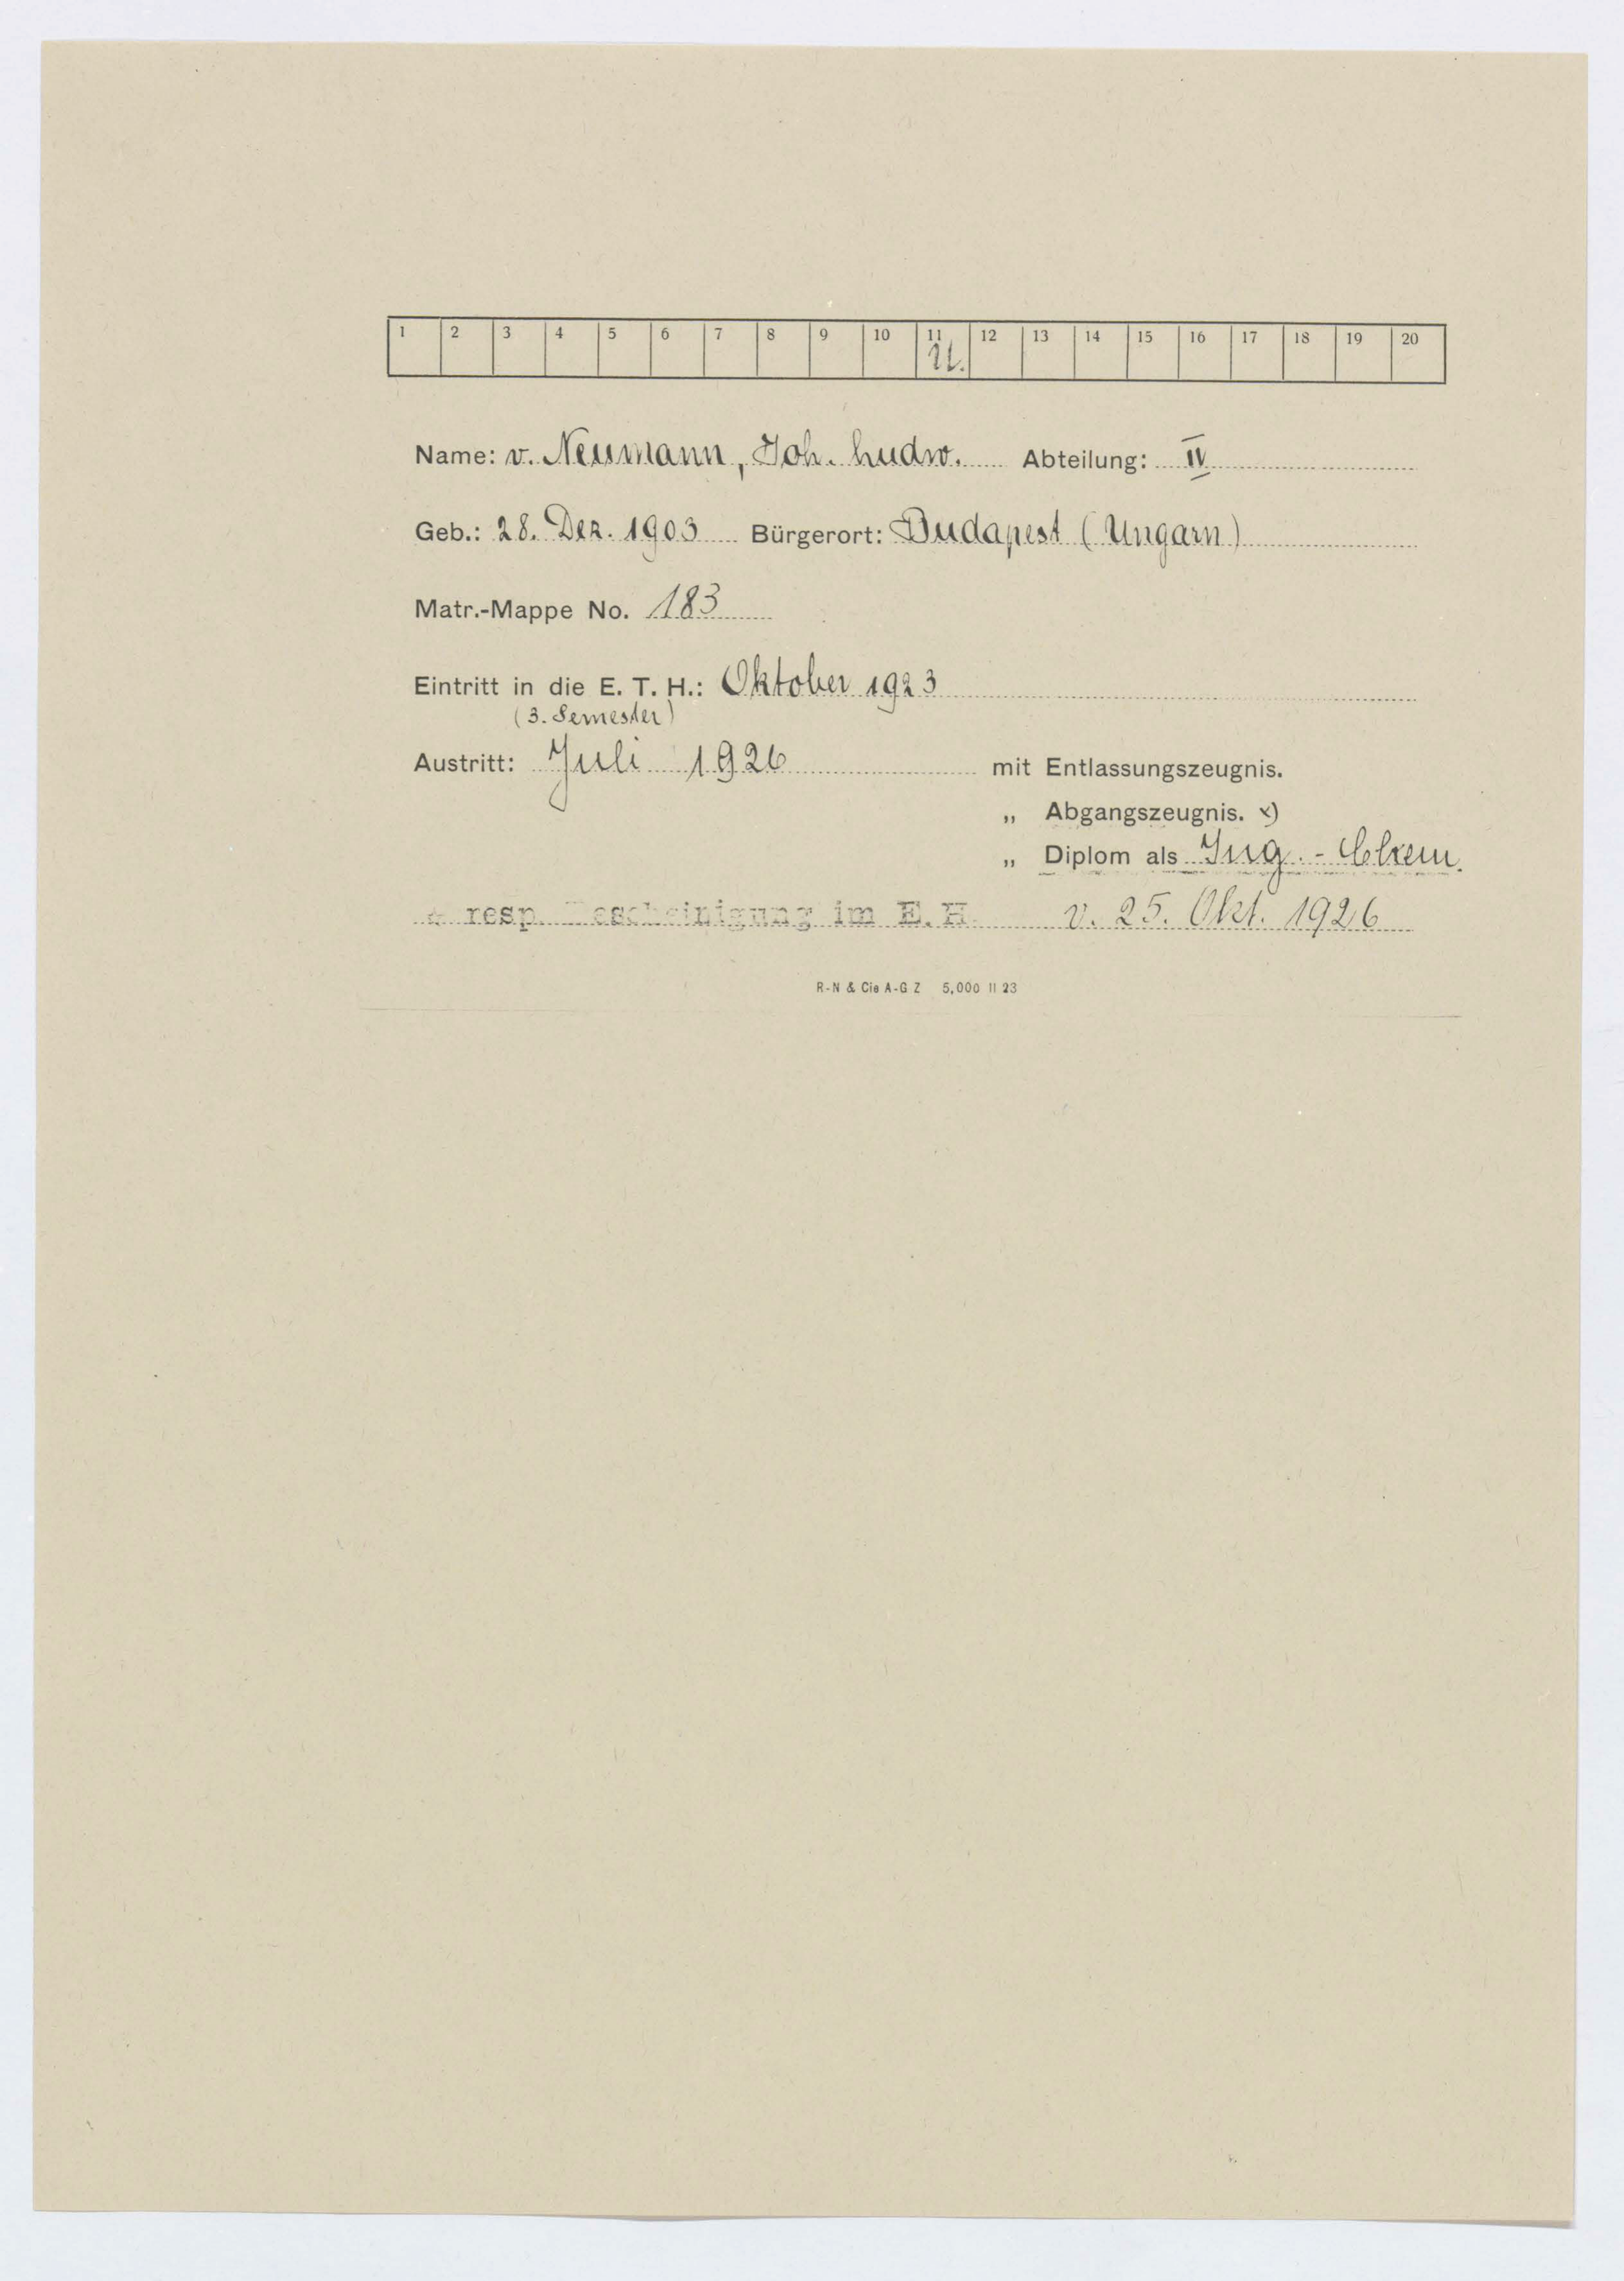 1 2 3 4 5 6 7 8 9 10 11 12 13 14 15 16 17 18 19 20
U.
Name: v. Neumann, Joh. Ludw. Abteilung: IV
Geb.: 28. Dez. 1903 Bürgerort: Budapest (Ungarn)
Matr.-Mappe No. 183
Eintritt in die E. T. H.: Oktober 1923
(3. Semester)
Austritt: Juli 1926 mit Entlassungszeugnis.
„ Abgangszeugnis. x)
„ Diplom als Ing.-Chem.
x resp. Bescheinigung im E. H. v. 25. Okt. 1926
R-N & Cie A-G Z 5,000 II 23